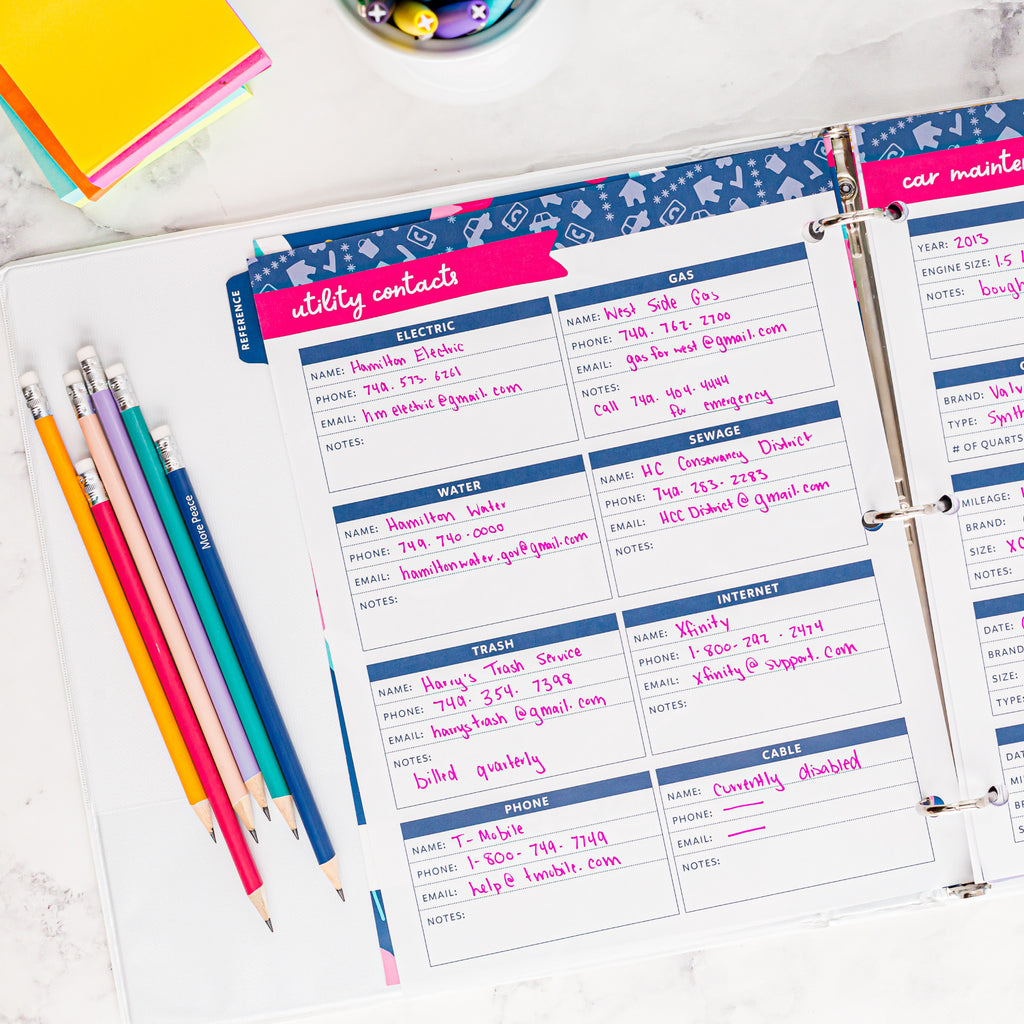 REFERENCE
utility contacts
ELECTRIC
NAME: Hamilton Electric
PHONE: 740. 573. 6261
EMAIL: hmelectric@gmail.com
NOTES:
GAS
NAME: West Side Gas
PHONE: 740. 762. 2700
EMAIL: gasforwest@gmail.com
NOTES:
Call 740. 404. 4444
for emergency
WATER
NAME: Hamilton Water
PHONE: 740. 740. 0000
EMAIL: hamiltonwater.gov@gmail.com
NOTES:
SEWAGE
NAME: HC Conservancy District
PHONE: 740. 283. 2283
EMAIL: HCCDistrict@gmail.com
NOTES:
TRASH
NAME: Harry's Trash Service
PHONE: 740. 354. 7398
EMAIL: harrystrash@gmail.com
NOTES:
billed quarterly
INTERNET
NAME: Xfinity
PHONE: 1-800-292-2474
EMAIL: xfinity@support.com
NOTES:
PHONE
NAME: T-Mobile
PHONE: 1-800-740-7749
EMAIL: help@tmobile.com
NOTES:
CABLE
NAME: Currently disabled
PHONE:
EMAIL:
NOTES:
car
YEAR: 2013
ENGINE SIZE: 1.5
NOTES:
BRAND:
TYPE:
# OF QUARTS
MILEAGE:
BRAND:
SIZE:
NOTES:
DATE:
BRAND
SIZE:
TYPE:
More Peace